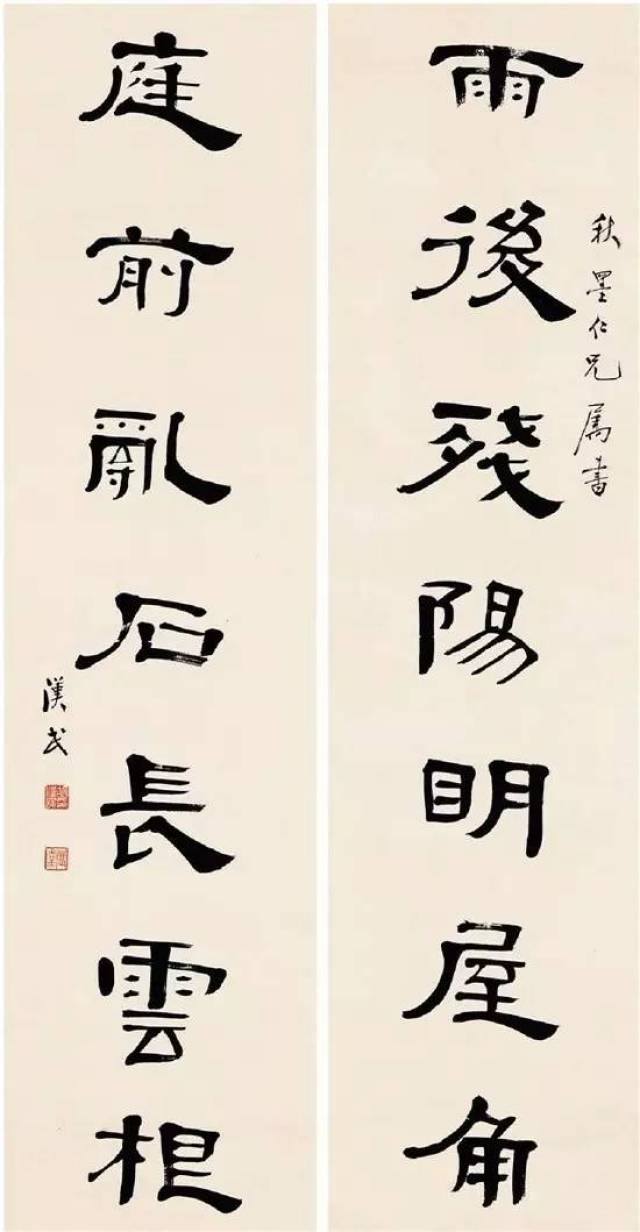 雨後殘陽明屋角
秋墨仁兄属書
庭前亂石長雲根
漢民